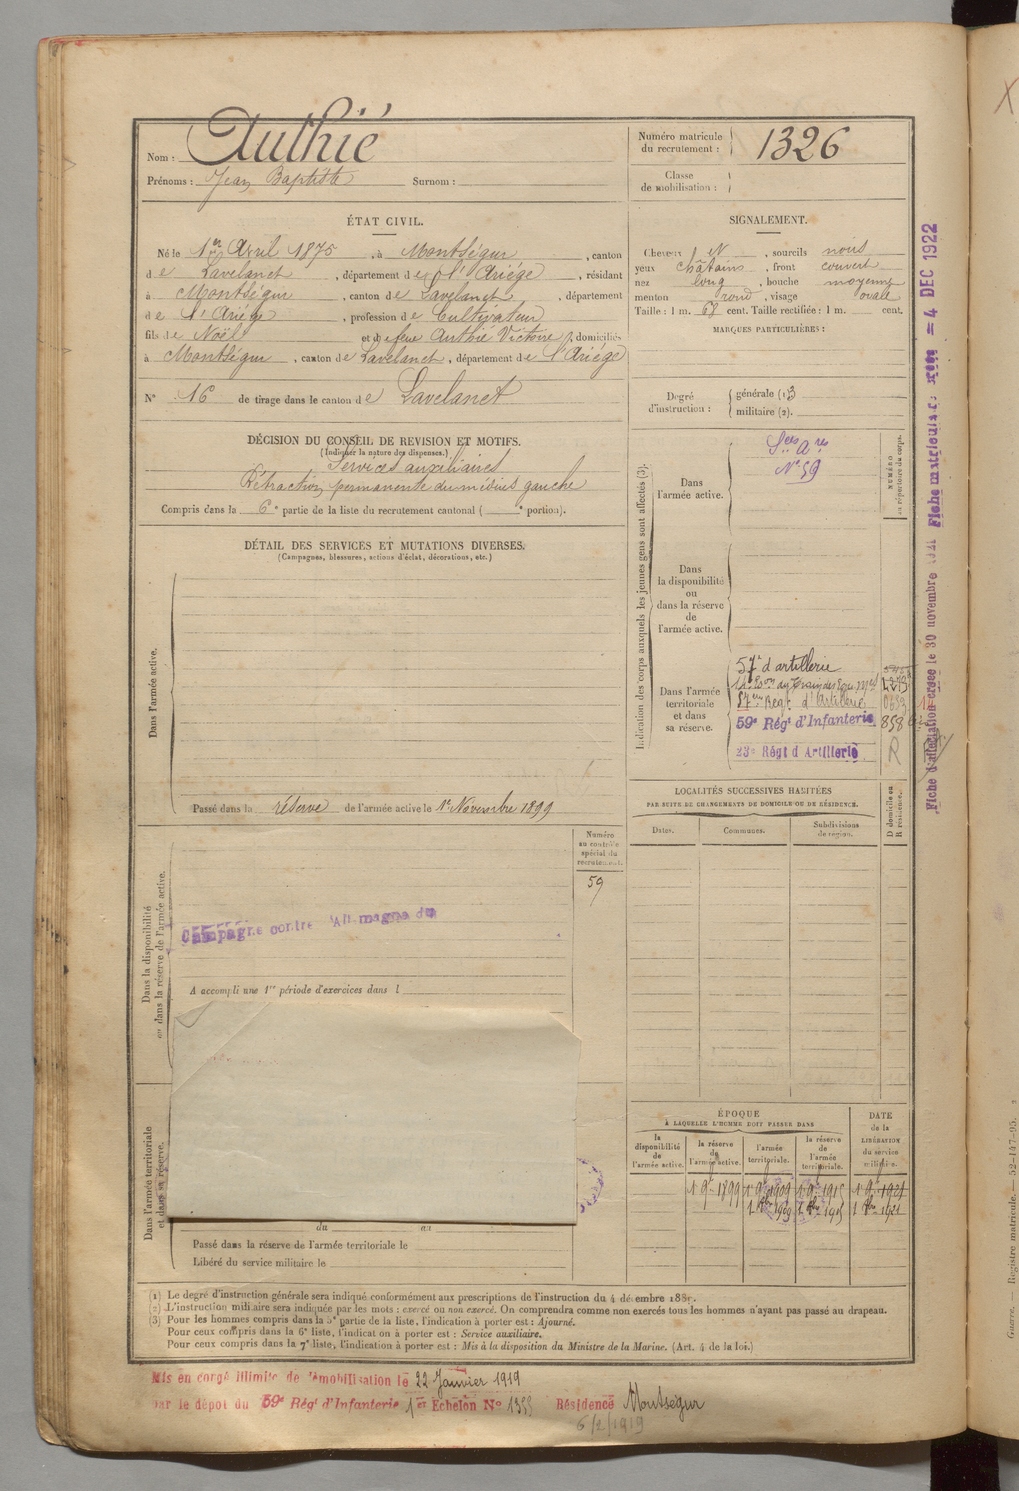 Nom : Authié
Prénoms : Jean Baptiste Surnom :
Numéro matricule du recrutement : 1326
Classe de mobilisation :
ÉTAT CIVIL.
Né le 1er Avril 1875, à Montségur, canton
de Lavelanet, département de l'Ariège, résidant
à Montségur, canton de Lavelanet, département
de l'Ariège, profession de Cultivateur
fils de Noël et de feue Authié Victoire, domiciliés
à Montségur, canton de Lavelanet, département de l'Ariége
N° 16 de tirage dans le canton de Lavelanet
SIGNALEMENT.
Cheveux N, sourcils noirs
yeux châtains, front couvert
nez long, bouche moyenne
menton rond, visage ovale
Taille : 1 m. 68 cent. Taille rectifiée : 1 m. cent.
MARQUES PARTICULIÈRES :
Degré d'instruction : générale (1) 3
militaire (2).
DÉCISION DU CONSEIL DE REVISION ET MOTIFS.
(Indiquer la nature des dispenses.)
Services auxiliaires
Rétraction permanente du médius gauche
Compris dans la 6e partie de la liste du recrutement cantonal ( e portion).
DÉTAIL DES SERVICES ET MUTATIONS DIVERSES.
(Campagnes, blessures, actions d'éclat, décorations, etc.)
Dans l'armée active.
Passé dans la réserve de l'armée active le 1er Novembre 1899
Numéro au contrôle spécial du recrutement.
59
Dans la disponibilité ou dans la réserve de l'armée active.
Campagne contre l'Allemagne du
A accompli une 1re période d'exercices dans l
Dans l'armée territoriale et dans sa réserve.
du au
Passé dans la réserve de l'armée territoriale le
Libéré du service militaire le
Indication des corps auxquels les jeunes gens sont affectés (3).
NUMÉRO au répertoire du corps.
Dans l'armée active.
Sces Ares
N° 59
Dans la disponibilité ou dans la réserve de l'armée active.
Dans l'armée territoriale et dans sa réserve.
57e d'artillerie
57eme Regt. d'Artillerie
59e Régt d'Infanterie 858
23e Régt d'Artillerie R
LOCALITÉS SUCCESSIVES HABITÉES
PAR SUITE DE CHANGEMENTS DE DOMICILE OU DE RÉSIDENCE.
Dates. Communes. Subdivisions de région. D domicile ou R résidence.
ÉPOQUE
À LAQUELLE L'HOMME DOIT PASSER DANS
DATE de la LIBÉRATION du service militaire.
la disponibilité de l'armée active. la réserve de l'armée active. l'armée territoriale. la réserve de l'armée territoriale.
1 9e 1899 1 9e 1909 1 9e 1915 1 9e 1921
(1) Le degré d'instruction générale sera indiqué conformément aux prescriptions de l'instruction du 4 décembre 1889.
(2) L'instruction militaire sera indiquée par les mots : exercé ou non exercé. On comprendra comme non exercés tous les hommes n'ayant pas passé au drapeau.
(3) Pour les hommes compris dans la 5e partie de la liste, l'indication à porter est : Ajourné.
Pour ceux compris dans la 6e liste, l'indication à porter est : Service auxiliaire.
Pour ceux compris dans la 7e liste, l'indication à porter est : Mis à la disposition du Ministre de la Marine. (Art. 4 de la loi.)
Mis en congé illimité de démobilisation le 22 Janvier 1919
par le dépôt du 59e Régt d'Infanterie 1er Echelon N° 1353 Résidence Montségur
6/2/1919
Fiche d'affectation créée le 30 novembre
Fiche matriculaire créée = 4 DEC 1922
Guerre. — Registre matricule. — 52-147-95.